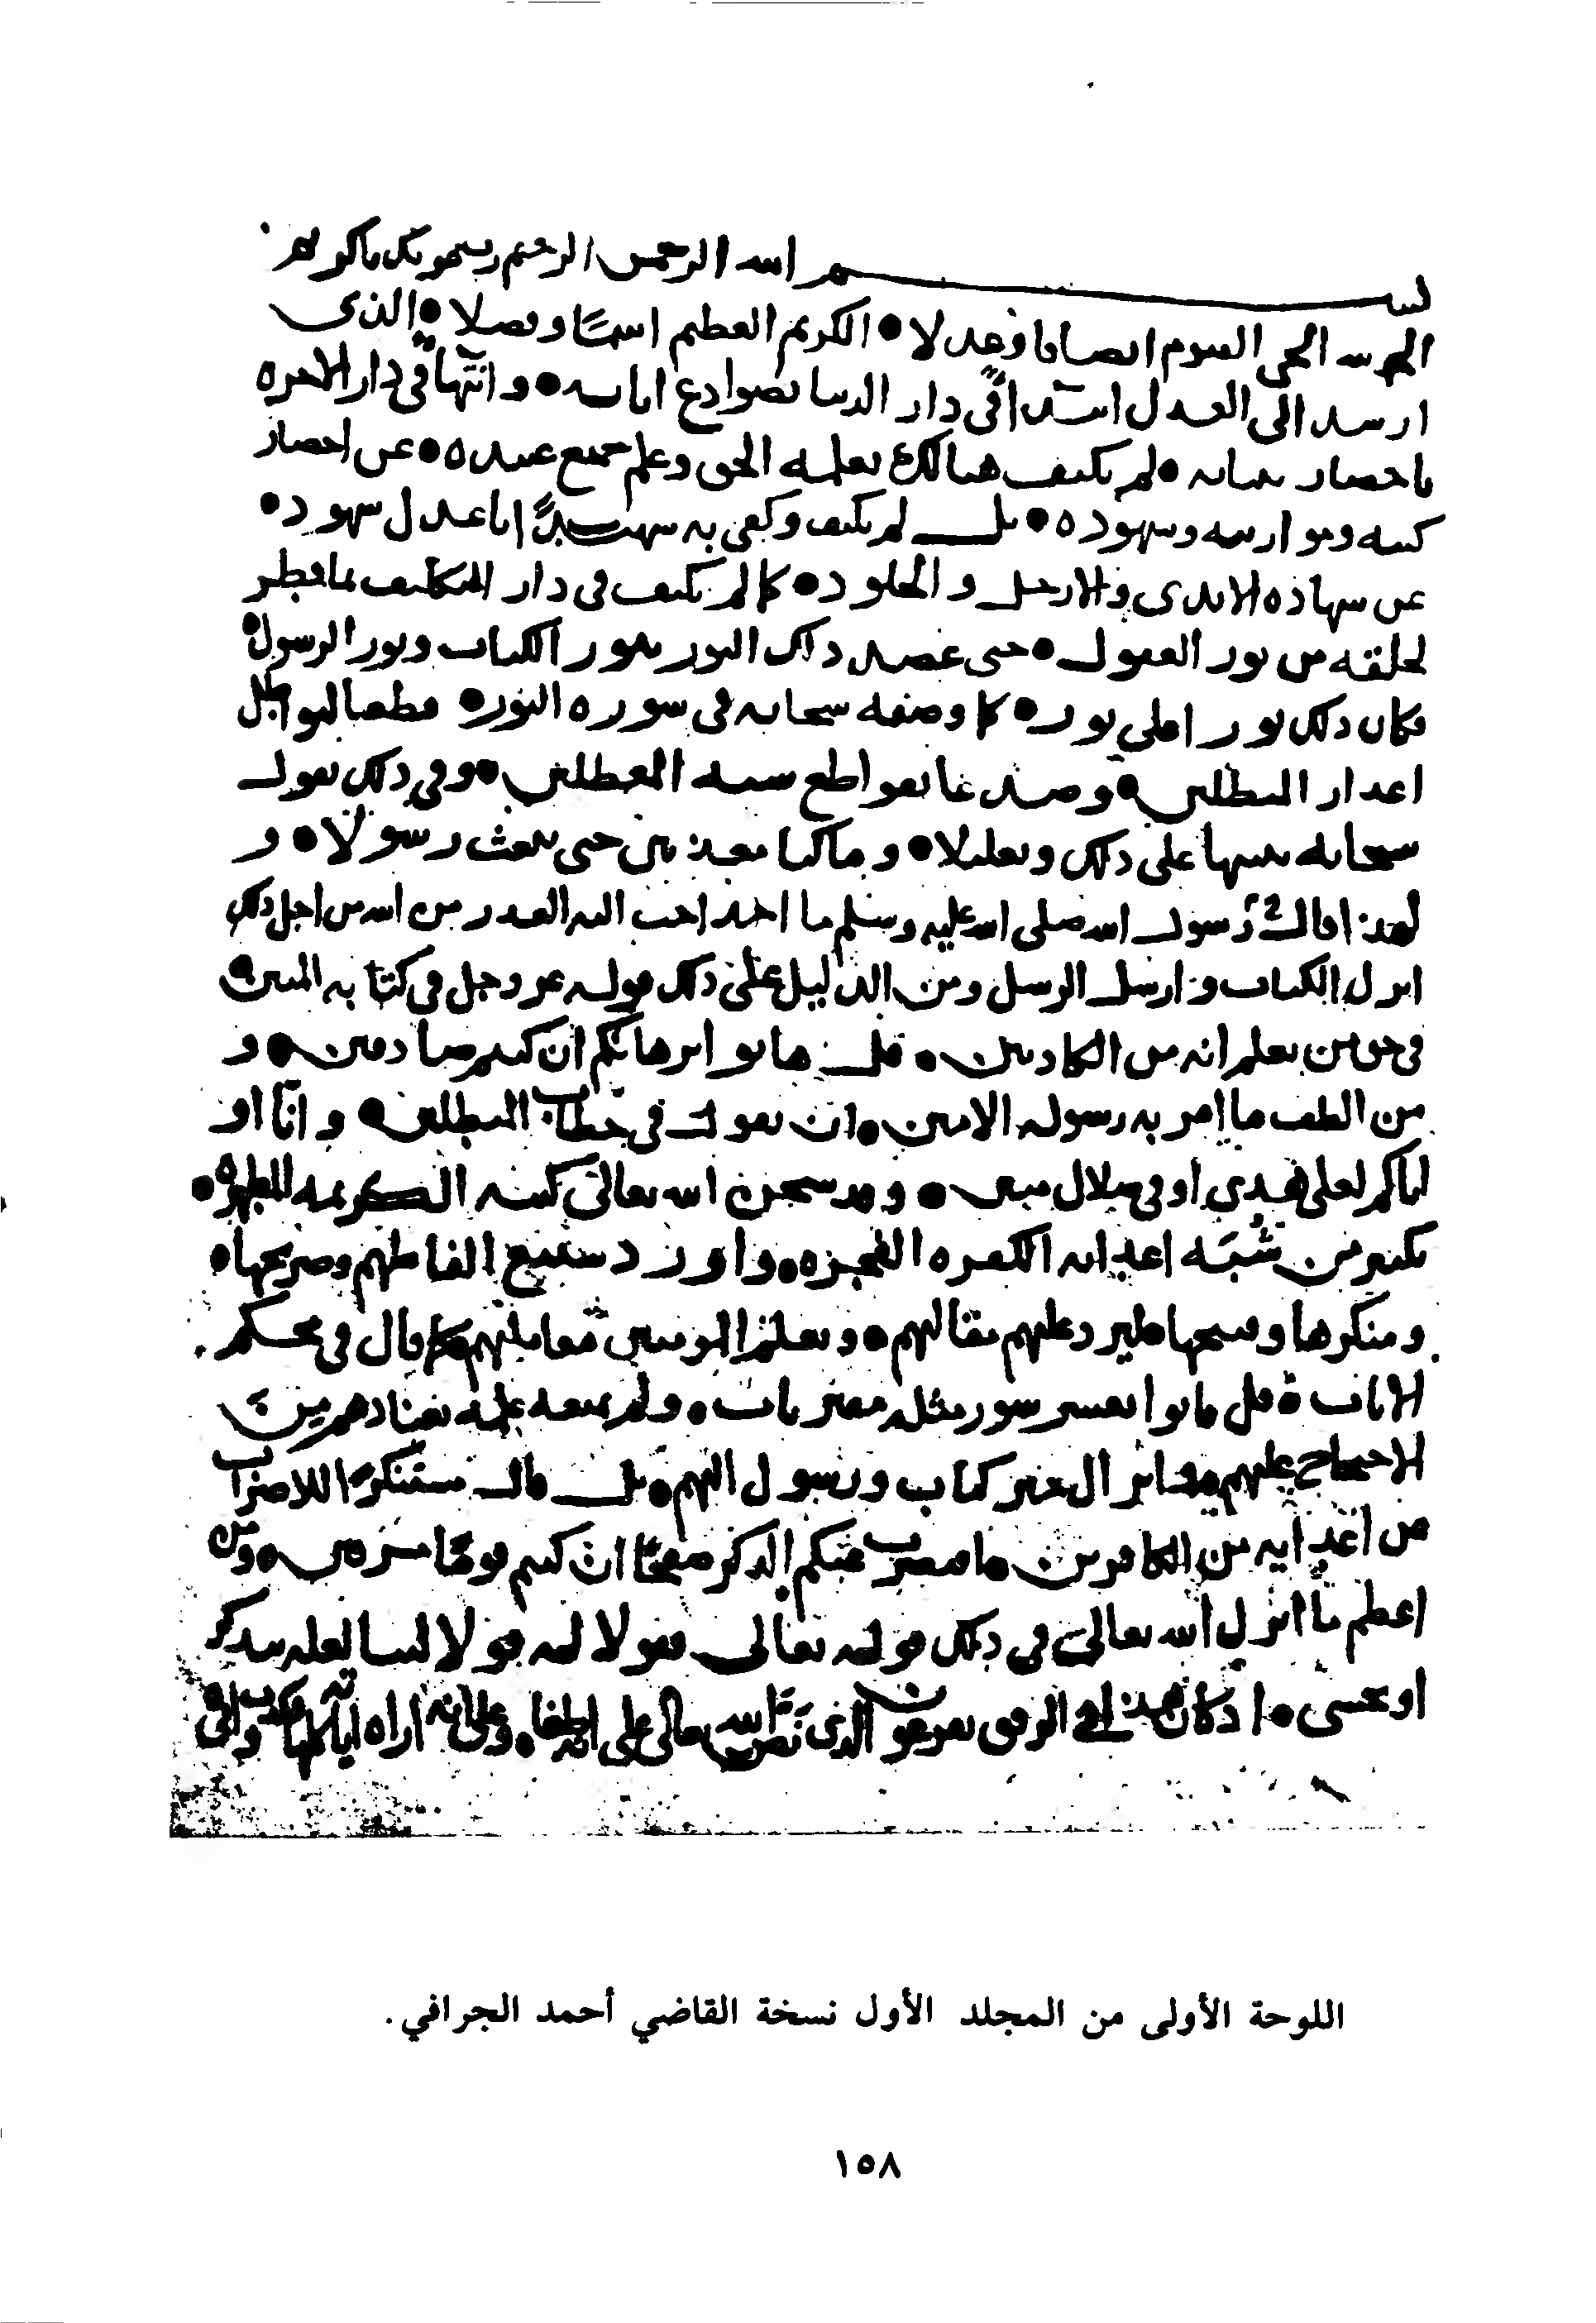 بسم الله الرحمن الرحيم وسهل يا كريم
الحمد لله الحي القيوم انصافا وعدلا • الكريم العظيم اسما وفضلا • الذي
ارشد الى العدل ابتداءً في دار الدنيا بصوادع اياته • وانتهاءً في دار الاخره
باحضار بيناته • لم يكتف هنالك بعلمه الحق وعلم جميع عبيده • عن احضار
كتبه وموازينه وشهوده • بل لم يكتف وكفى به شهيدًا اياعدل شهود •
عن شهاده الايدي والارجل والجلود • كما لم يكتف في دار التكليف بما فطر
لخلقه من نور العقول • حتى عضد ذلك النور بنور الكتاب ونور الرسول •
فكان ذلك نورا على نور • كما وصفه سبحانه في سوره النور • قطعا لبواطل
اعذار المبطلين • وصدعا بقواطع سبه المعطلين • وفي ذلك يقول
سبحانه منبها على ذلك وتعليلا • وما كنا معذبين حتى نبعث رسولا • و
لهذا قال رسول الله صلى الله عليه وسلم ما احد احب اليه العذر من الله من اجل ذلك
انزل الكتاب وارسل الرسل ومن الدليل على ذلك قوله عز وجل في كتابه المبين •
في حق من يعلم انه من الكاذبين • قل هاتوا برهانكم ان كنتم صادقين • و
من الطف ما امر به رسوله الامين • ان يقول في خطاب المبطلين • وانا او
اياكم لعلى هدى او في ضلال مبين • وقد شحن الله تعالى كتبه الكريمه المطهره •
بكثير من شبه اعدائه الكفره الفجره • واورد شنيع الفاظهم وصريحها •
ومنكرها وقبيحها ليرد عليهم مقالهم • ويعلم المومنين معاملتهم كما قال في محكم
الايات • قل فاتوا بعشر سور مثله مفتريات • ولم يمنعه علمه بعنادهم من
الاحتجاج عليهم وانزال خير كتاب ورسول اليهم • بل قال مستنكرًا للاضراب
عن اعدايه من الكافرين • افنضرب عنكم الذكر صفحًا ان كنتم قومًا مسرفين • ومن
اعظم ما انزل الله تعالى في ذلك قوله تعالى فقولا له قولا لينا لعله يتذكر
او يخشى • اذ كان هذا في الرفق بفرعون الذي نص الله تعالى على انه طغا • وعلى انه اراه اياته كلها فكذب وابى
اللوحة الأولى من المجلد الأول نسخة القاضي أحمد الجرافي.
١٥٨